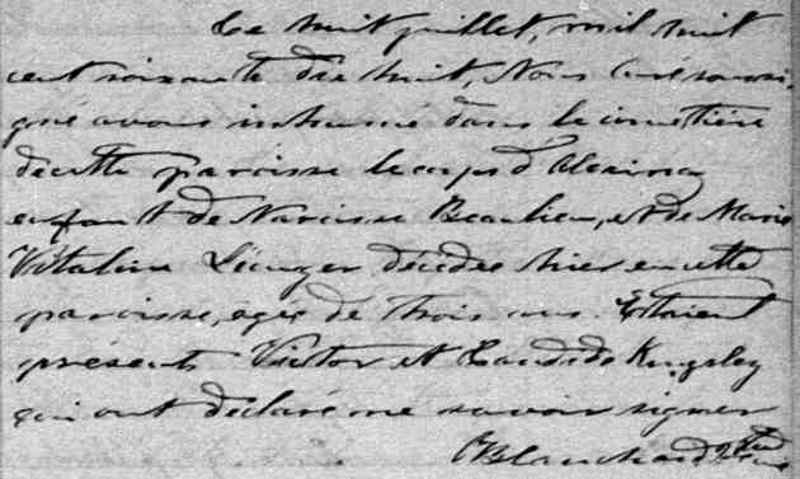 Le huit juillet, mil huit
cent soixante dix huit, Nous Curé soussi-
gné avons inhumé dans le cimetière
de cette paroisse le corps d'Alexina
enfant de Narcisse Beaulieu, et de Marie
Vitaline décédée hier en cette
paroisse, agée de trois ans. Etaient
présents Victor et Kingsley
qui ont déclaré ne savoir signer
Blanchard